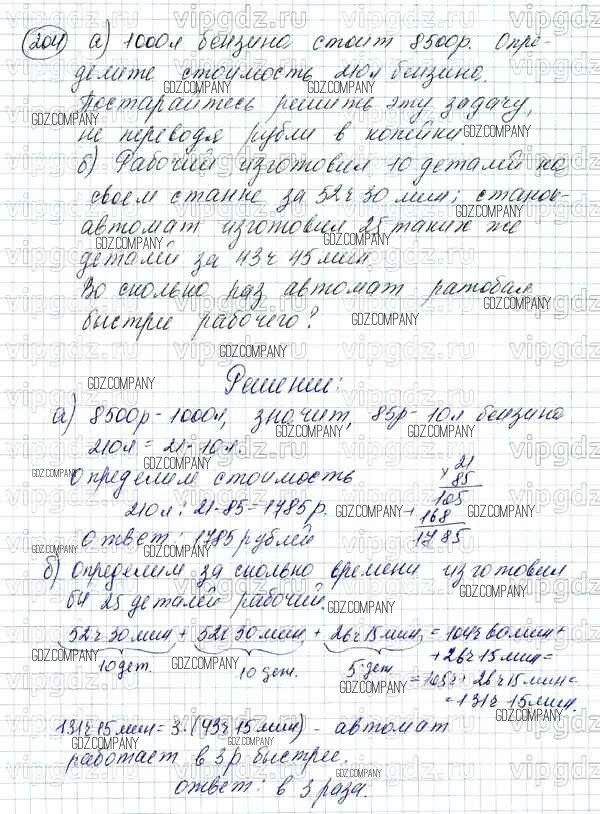 204 а) 1000л бензина стоит 8500р. Опре-
делите стоимость 210л бензина.
Постарайтесь решить эту задачу,
не переводя рубли в копейки.
б) Рабочий изготовил 10 деталей на
своем станке за 52ч 30 мин; станок-
автомат изготовил 25 таких же
деталей за 43ч 45мин.
Во сколько раз автомат работал
быстрее рабочего?
Решение:
а) 8500р - 1000л, значит, 85р - 10л бензина
210л = 21·10л.
Определим стоимость
210л: 21·85=1785р.
21
× 85
105
+ 168
1785
Ответ: 1785 рублей
б) Определим за сколько времени изготовил
бы 25 деталей рабочий.
52ч 30мин + 52ч 30мин + 26ч 15мин = 104ч 60мин+
10дет. 10 дет. 5 дет
+26ч 15мин=
=105ч + 26ч 15мин=
=131ч 15мин.
131ч 15мин = 3·(43ч 15мин) - автомат
работает в 3р быстрее.
Ответ: в 3 раза.
GDZ.COMPANY
vipgdz.ru